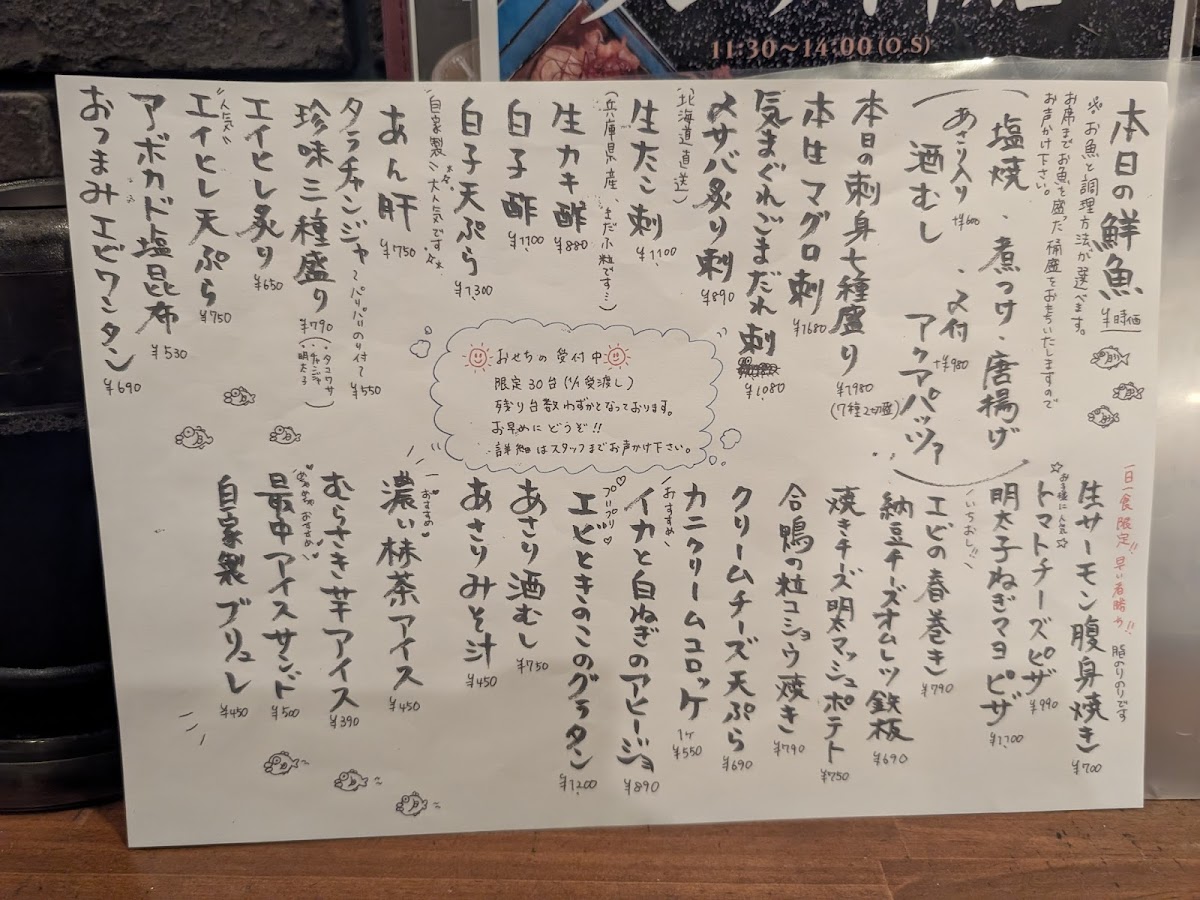 11:30~14:00(O.S)
本日の鮮魚 ¥時価
※お魚と調理方法が選べます。
お席までお魚を盛った桶盛をおもちいたしますので
お声かけ下さい。
塩焼、煮つけ・唐揚げ
あさり入り +¥600
酒むし
・〆付 +¥980
アクアパッツァ
本日の刺身七種盛り ¥1980
(7種2切盛)
本生マグロ刺 ¥1680
気まぐれごまだれ刺 ¥1080
〆サバ炙り刺 ¥890
(北海道直送)
生たこ刺 ¥1100
(兵庫県産、まだ小粒です…)
生カキ酢 ¥880
白子酢 ¥1100
白子天ぷら ¥1300
自家製 大人気です
あん肝 ¥750
タラチャンジャ ~パリパリのり付~ ¥550
珍味三種盛り ¥790
(・タコワサ
・チャンジャ
・明太子)
エイヒレ炙り ¥650
人気
エイヒレ天ぷら ¥750
アボカド塩昆布 ¥530
おつまみエビワンタン ¥690
おせちの受付中
限定30台(12/31受渡し)
残り台数わずかとなっております。
お早めにどうぞ!!
詳細はスタッフまでお声かけ下さい。
一日一食限定!! 早い者勝ち!! 脂のりのりです
生サーモン腹身焼き ¥700
☆お子様に人気☆
トマトチーズピザ ¥990
明太子ねぎマヨピザ ¥1,100
いちおし!!
エビの春巻き ¥790
納豆チーズオムレツ鉄板 ¥690
焼きチーズ明太マッシュポテト ¥750
合鴨の粒コショウ焼き ¥790
クリームチーズ天ぷら ¥690
カニクリームコロッケ 1ヶ ¥550
おすすめ
イカと白ねぎのアヒージョ ¥890
プリプリ
エビときのこのグラタン ¥1200
あさり酒むし ¥750
あさりみそ汁 ¥450
おすすめ
濃い抹茶アイス ¥450
むらさき芋アイス ¥390
めちゃめちゃおすすめ
最中アイスサンド ¥500
自家製ブリュレ ¥450